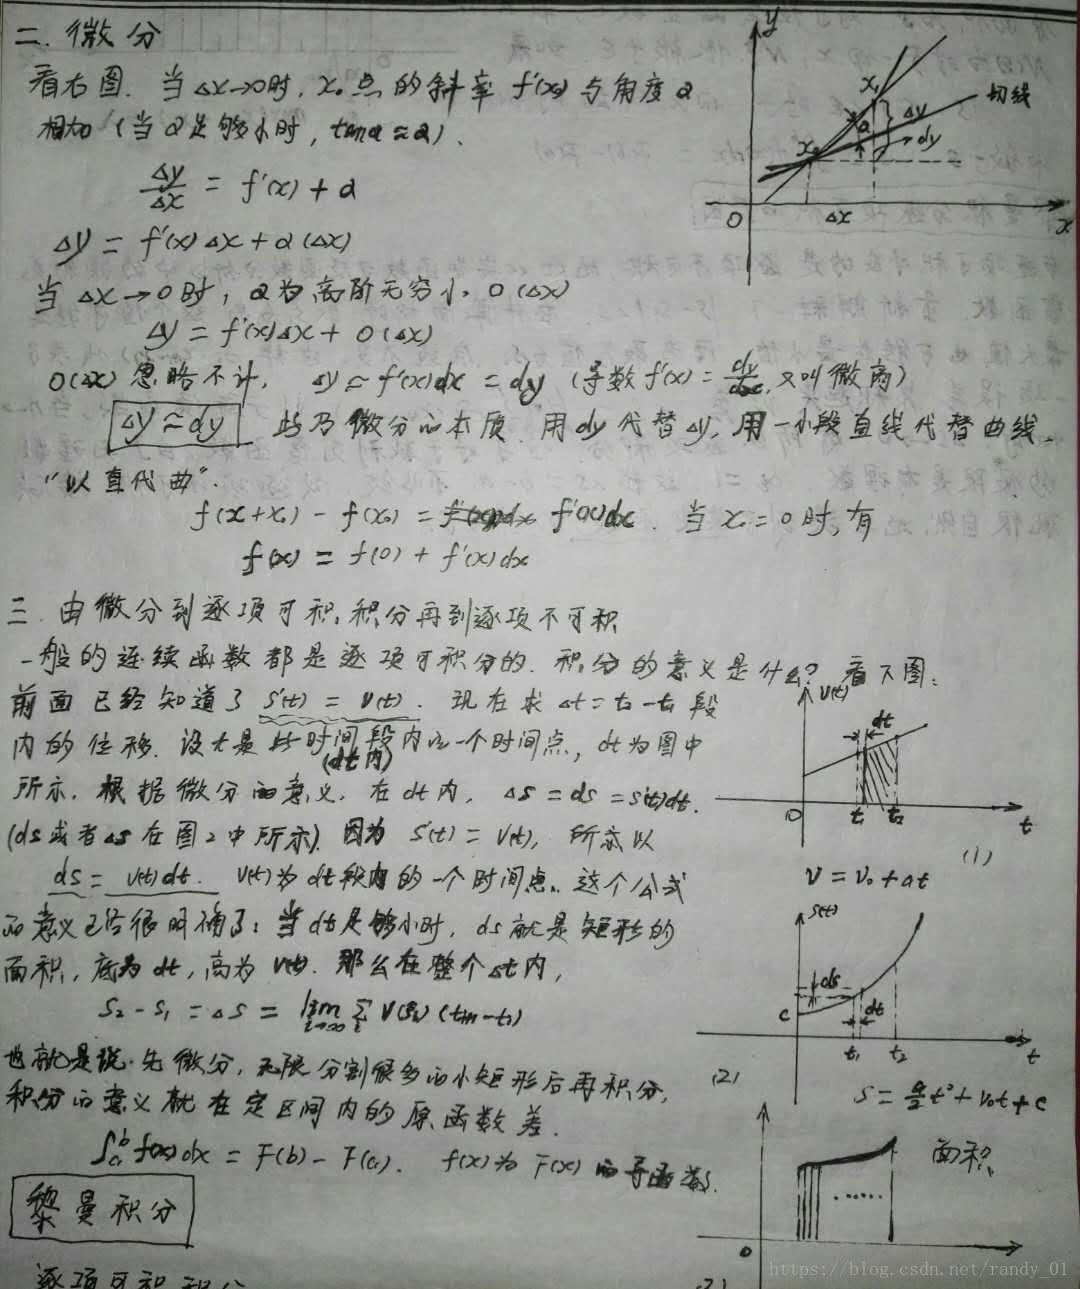 二. 微分
看右图. 当 Δx→0时, x₀ 点的斜率 f'(x₀) 与角度 α
相加 (当 α 足够小时, tanα ≈ α).
Δy/Δx = f'(x) + α
Δy = f'(x)Δx + α(Δx)
当 Δx → 0 时, α为高阶无穷小. 0(Δx)
Δy = f'(x)Δx + 0(Δx)
0(Δx) 忽略不计, Δy ≈ f'(x)dx = dy (导数 f'(x) = dy/dx, 又叫微商)
Δy ≈ dy 此乃微分的本质. 用dy代替Δy, 用一小段直线代替曲线.
"以直代曲".
f(x+x₀) - f(x₀) = f'(x)dx. 当 x₀ = 0 时, 有
f(x) = f(0) + f'(x)dx
y
x₁
切线
Δy
α
dy
x₀
0
Δx
x
三. 由微分到逐项可积, 积分再到逐项不可积
一般的连续函数都是逐项可积分的. 积分的意义是什么? 看下图:
前面已经知道了 S'(t) = V(t). 现在求 Δt = t₂ - t₁ 段
内的位移. 设t是此时间段内的一个时间点, dt为图中
(dt内)
所示. 根据微分的意义, 在dt内, Δs = ds = s'(t)dt.
(ds或者Δs在图2中所示). 因为 S'(t) = V(t), 所以
ds = V(t)dt. V(t)为dt段内的一个时间点. 这个公式
的意义已经很明确了: 当dt足够小时, ds就是矩形的
面积, 底为dt, 高为V(t). 那么在整个Δt内,
S₂ - S₁ = Δs = lim i→∞ Σ i V(ξᵢ)(tᵢ₊₁ - tᵢ)
也就是说. 先微分, 无限分割很多的小矩形后再积分,
积分的意义就在定区间内的原函数差.
∫ₐᵇ f(x)dx = F(b) - F(a). f(x)为F(x)的导函数.
黎曼积分
逐项可积积分
V(t)
dt
0
t₁
t₂
t
(1)
V = V₀ + at
S(t)
ds
c
dt
t₁
t₂
t
(2)
S = a/2 t² + V₀t + c
面积
......
0
https://blog.csdn.net/randy_01